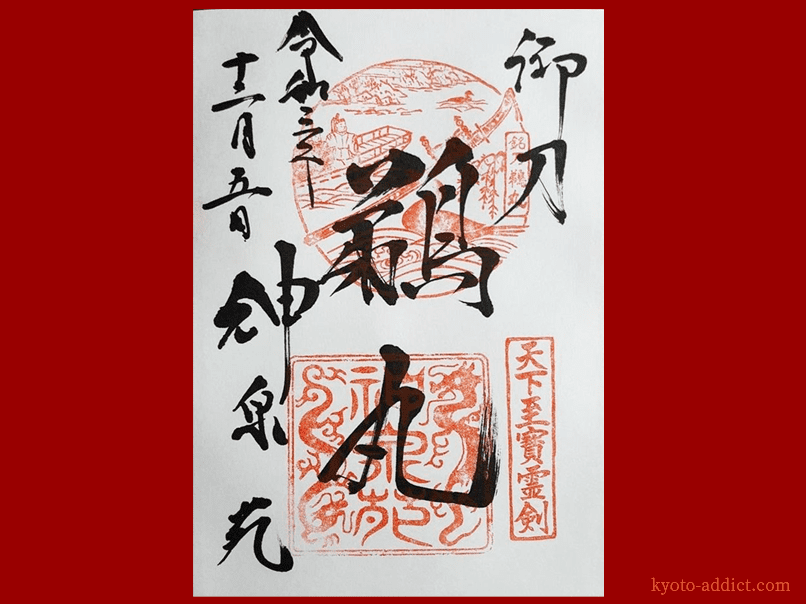 御刀
天下至寶霊剣
鵜丸
神泉苑
令和三年
十二月五日
神泉苑
kyoto-addict.com